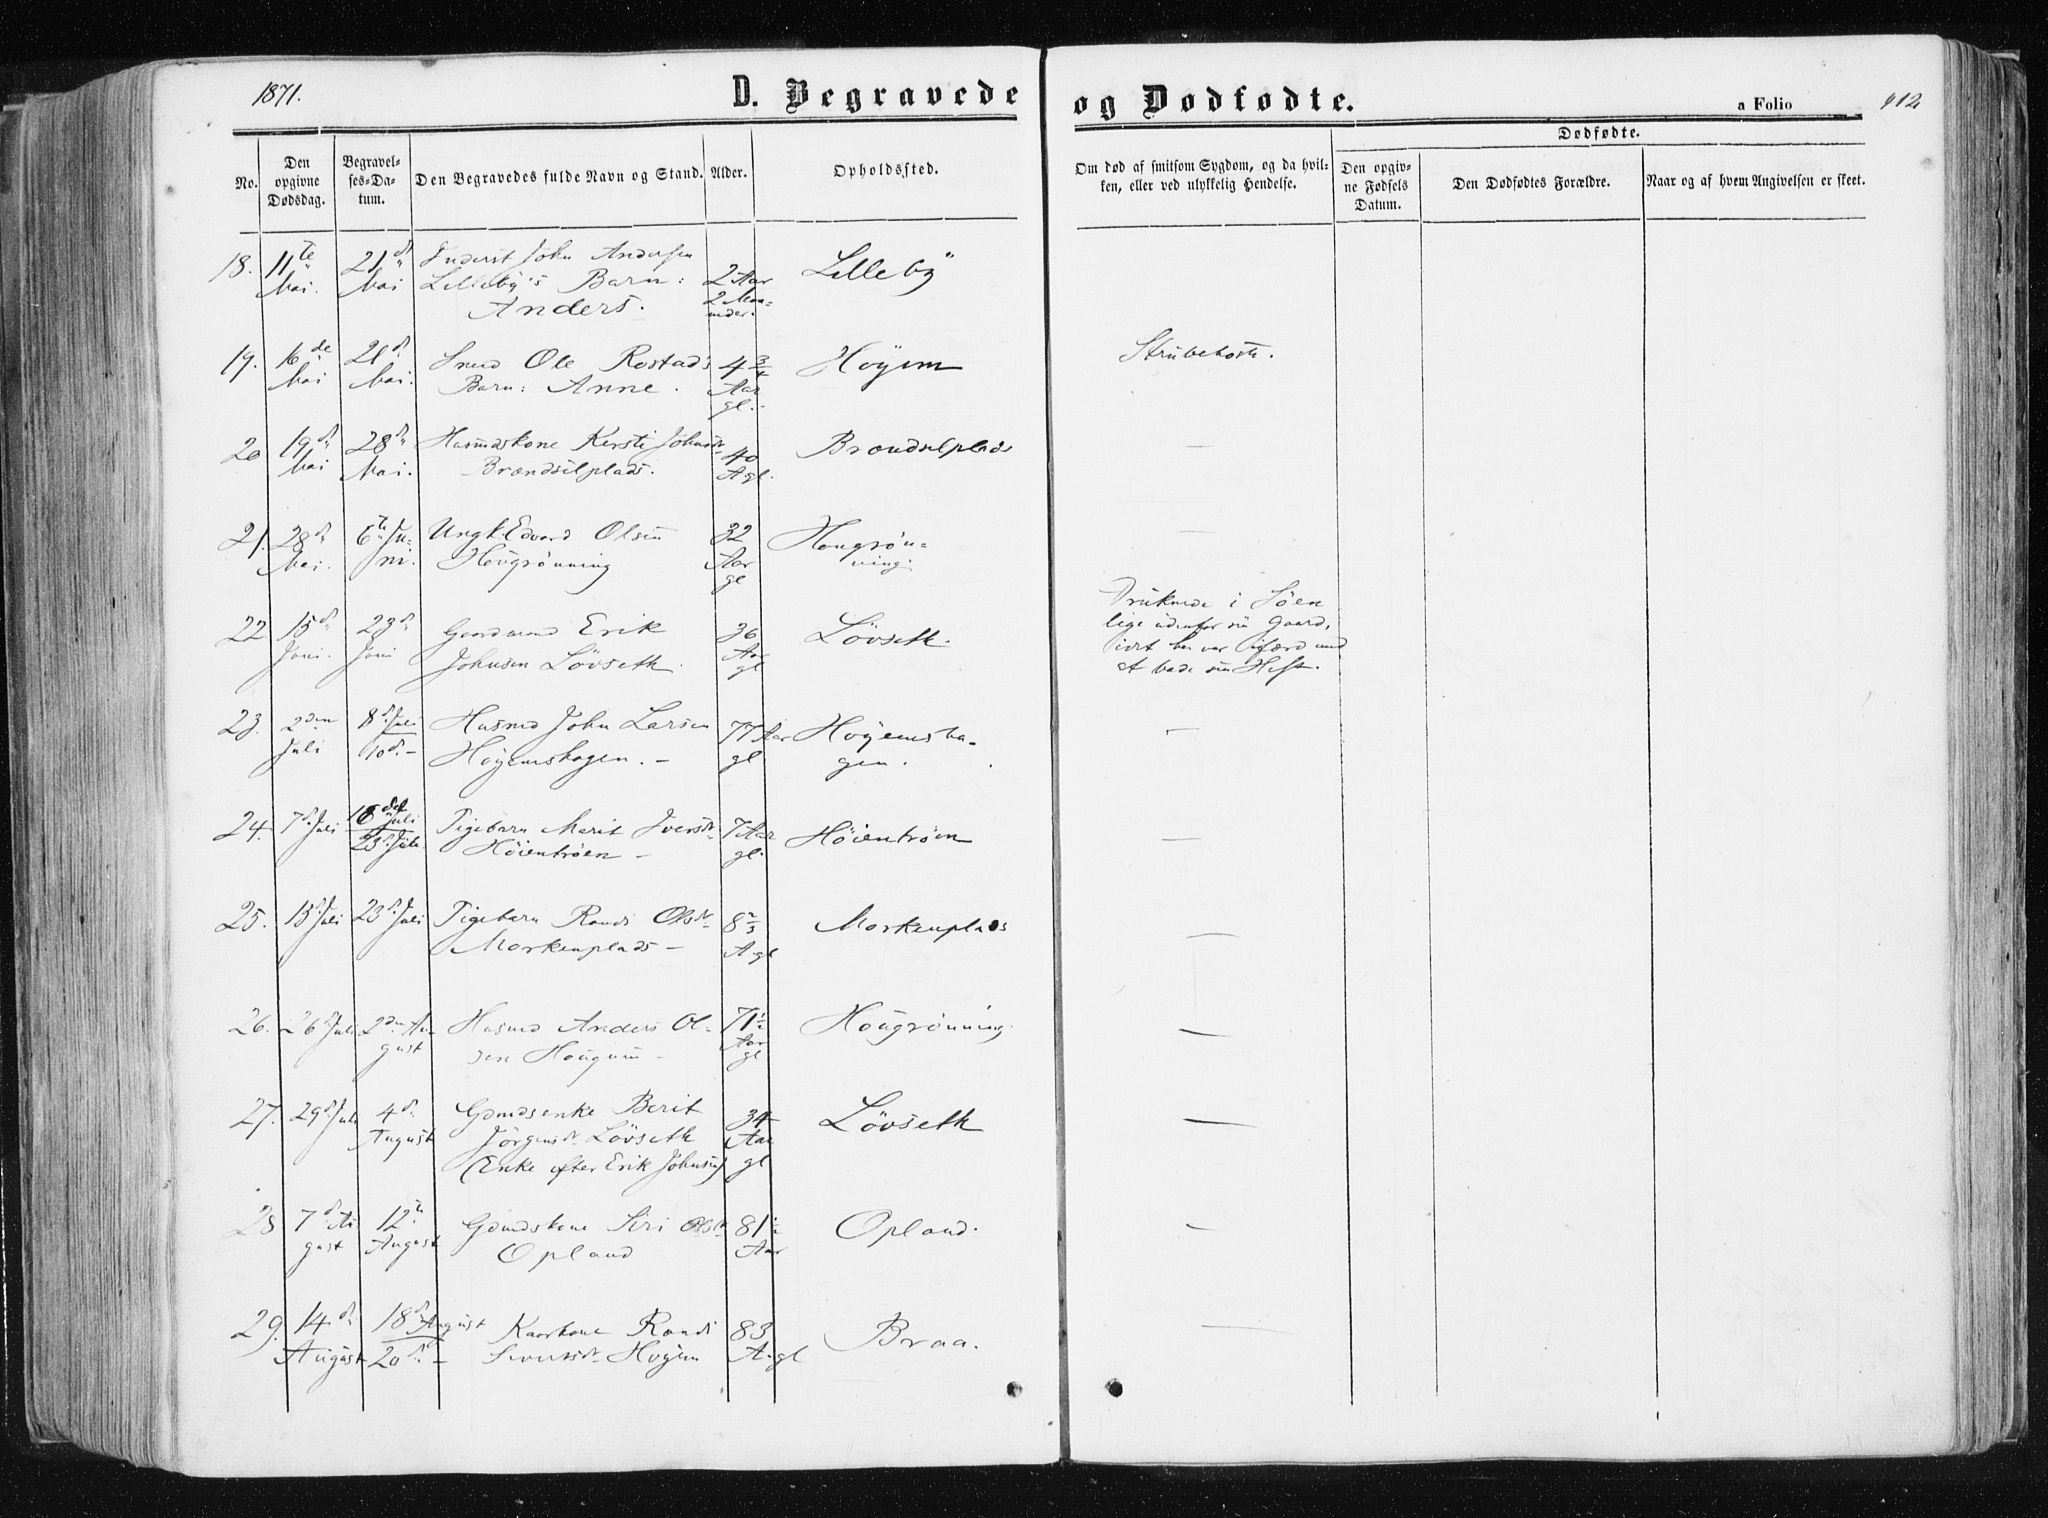 1871.
D. Begravede og Dødfødte.
a Folio 412
Dødfødte.
No.
Den opgivne Dødsdag.
Begravelses-Datum.
Den Begravedes fulde Navn og Stand.
Alder.
Opholdssted.
Om død af smitsom Sygdom, og da hvilken, eller ved ulykkelig Hendelse.
Den opgivne Fødsels Datum.
Den Dødfødtes Forældre.
Naar og af hvem Angivelsen er skeet.
18. 11te Mai. 21d Mai Inderst John Andersen
Lilleby's Barn: Anders. 2 Aar 2 Maaneder. Lilleby
19. 16de Mai 21d Mai. Smed Ole Rostads
Barn: Anne. 4 3/4 Aar gl. Höyem Strubehoste.
20 19d Mai 28d Mai. Husmdskone Kersti Johnsdt
Brændsilplads. 40 A gl. Brændsilplads —
21. 28d Mai. 6te Juni. Ungk. Edvard Olsen
Hougrønning 32 Aar gl Hougrønning. —
22 15d Juni. 23d Juni Gaardmand Erik
Johnsen Lövseth. 36 Aar gl Lövseth. Druknede i Söen
lige udenfor sin Gaard,
idet han var ifærd med
at bade sin Hest.
23. 2den Juli 8d Juli 10d. – Husmd John Larsen
Höyemshagen. – 77 Aar gl Höyemshagen. —
24. 7d Juli 16de Juli 23d Juli. Pigebarn Marit Iversdt
Høientrøen – 7 Aar gl. Høientrøen —
25. 15d Juli 23d Juli Pigebarn Randi Olsdt
Morkenplads – 8 2/3 A gl Morkenplads —
26. 26d Juli 2den August Husmd Anders Olsen
Hougum – 71 1/2 Aar gl Hougrønning. —
27. 29d Juli 4d. August Gdmdsenke Berit
Jörgensdt Lövseth
(Enke efter Erik Johnsen) 34 Aar gl Lövseth —
28 7d August 12te August Gdmdskone Siri Olsdt
Opland 81 1/2 Aar Opland. —
29. 14.d August 18d August 20d. – Kaarkone Randi
Sivertsdt Hoyem 83 A. gl Braa. —